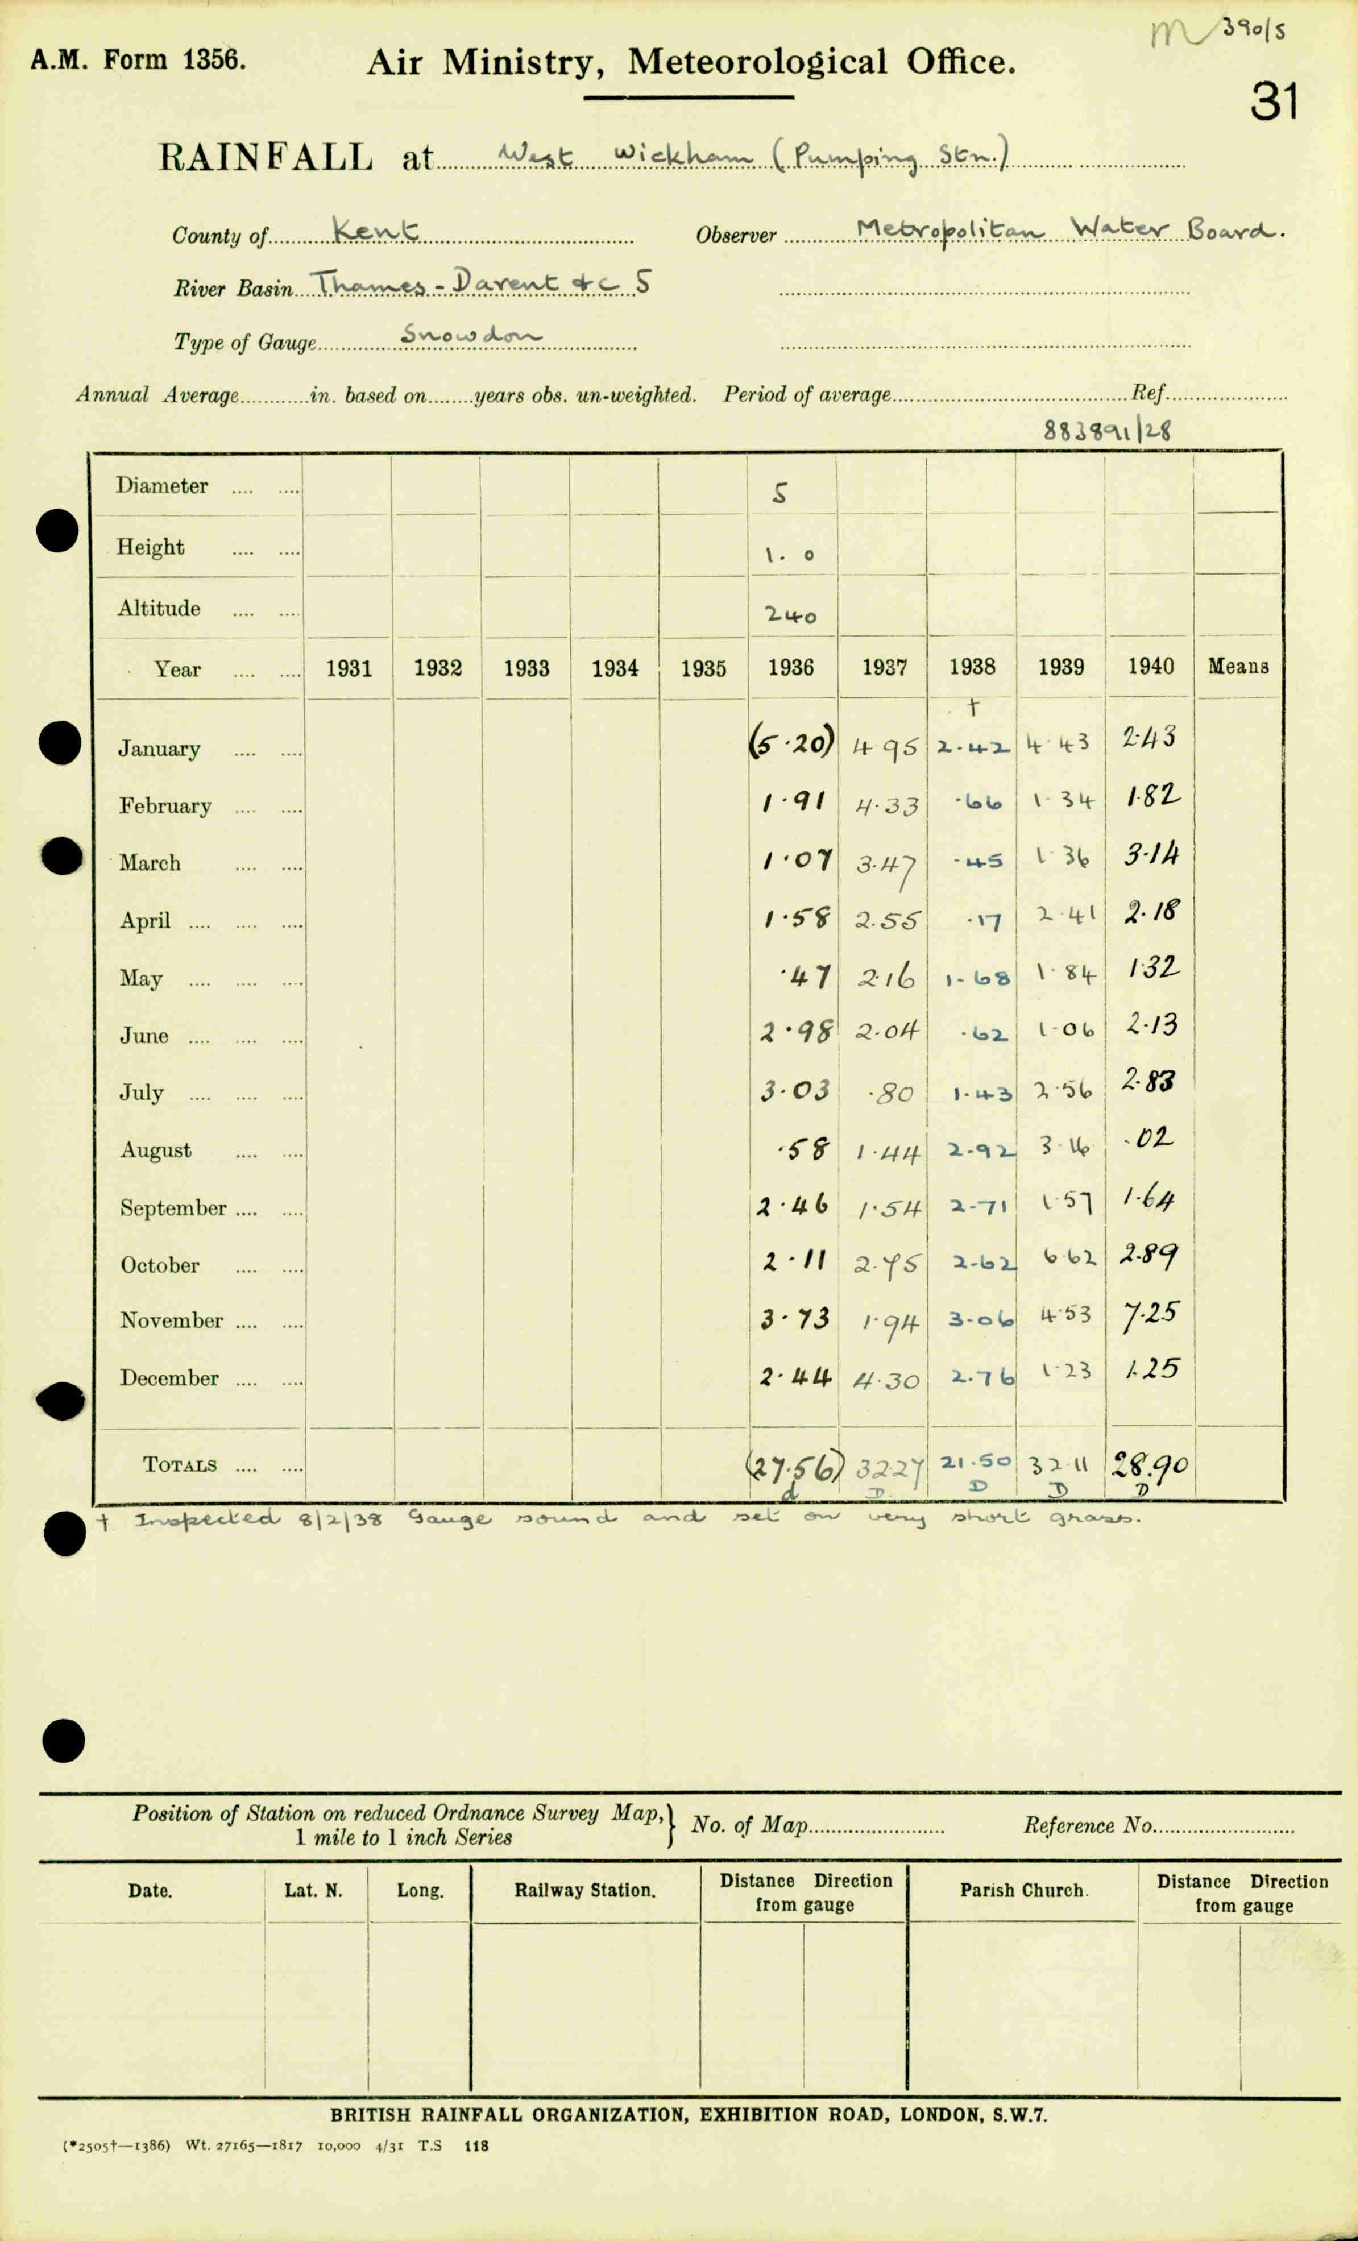 M 390/5
A.M. Form 1356. Air Ministry, Meteorological Office.
31
RAINFALL at West Wickham (Pumping Stn.)
County of Kent Observer Metropolitan Water Board.
River Basin Thames - Darent &c 5
Type of Gauge Snowdon
Annual Average in. based on years obs. un-weighted. Period of average Ref.
883891/28
Diameter 5
Height 1. 0
Altitude 240
Year 1931 1932 1933 1934 1935 1936 1937 1938 1939 1940 Means
†
January (5.20) 4.95 2.42 4.43 2.43
February 1.91 4.33 .66 1.34 1.82
March 1.07 3.47 .45 1.36 3.14
April 1.58 2.55 .17 2.41 2.18
May .47 2.16 1.68 1.84 1.32
June 2.98 2.04 .62 1.06 2.13
July 3.03 .80 1.43 2.56 2.83
August .58 1.44 2.92 3.16 .02
September 2.46 1.54 2.71 1.57 1.64
October 2.11 2.75 2.62 6.62 2.89
November 3.73 1.94 3.06 4.53 7.25
December 2.44 4.30 2.76 1.23 1.25
TOTALS (27.56) 32.27 21.50 32.11 28.90
d D D D D
† Inspected 8/2/38 Gauge sound and set on very short grass.
Position of Station on reduced Ordnance Survey Map, } No. of Map Reference No.
1 mile to 1 inch Series
Date. Lat. N. Long. Railway Station. Distance Direction Parish Church. Distance Direction
from gauge from gauge
BRITISH RAINFALL ORGANIZATION, EXHIBITION ROAD, LONDON, S.W.7.
(*2505†—1386) Wt. 27165—1817 10,000 4/31 T.S 118